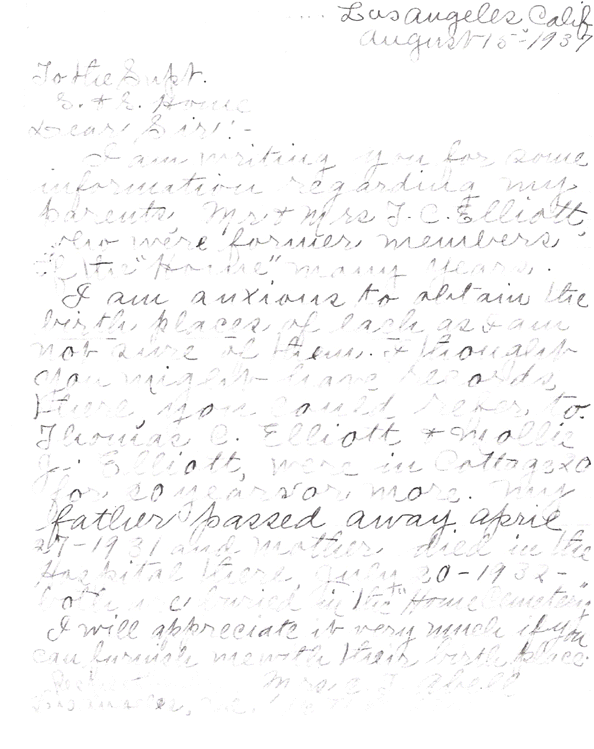 Los Angeles Calif
August 15-1937
To the Supt.
S. & S. Home
Dear Sir:-
I am writing you for some
information regarding my
parents, Mr & Mrs T. C. Elliott,
who were former members
of the "Home" many years.
I am anxious to obtain the
birth places of each as I am
not sure of them. I thought
you might have records
there, you could refer to.
Thomas C. Elliott & Mollie
J. Elliott, were in Cottage 20
for 20 years or more. My
father passed away April
27-1931 and Mother died in the
Hospital there, July 20-1932-
both are buried in the "Home Cemetery"
I will appreciate it very much if you
can furnish me with their birth place.
Mrs